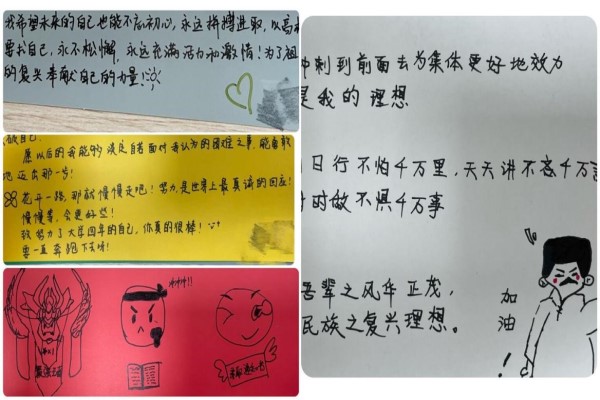 我希望未来的自己也能不忘初心，永远拼搏进取，以高标
要求自己，永不松懈，永远充满活力和激情！为了祖
的复兴奉献自己的力量！
自己。
愿以后的我能够淡定自若面对我认为的困难之事，能勇敢
地迈出那一步！
花开一路，那就慢慢走吧！努力是世界上最真诚的回应！
慢慢等，会更好些！
致努力了大学四年的自己，你真的很棒！
要一直奔跑下去呀！
冲冲冲!!
冲刺到前面去为集体更好地效力
是我的理想
日行不怕千万里，天天讲不吝千万言
时时做不惧千万事
吾辈之风华正茂，
民族之复兴理想。
加
油
！